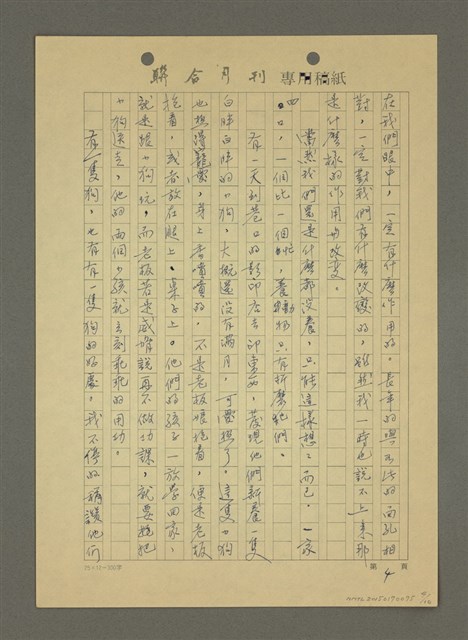 聯合月刊 專用稿紙
在我們眼中，一定有什麼作用的。長年的與不語的面孔相
對，一定對我們有什麼改變的，雖然我一時也說不上來那
是什麼樣的作用與改變。
當然我們還是什麼都沒養，只能這樣想想而已。一家
四口，一個比一個忙，養動物只有折磨牠們。
有一天到巷口的影印店去印東西，發現他們新養一隻
白胖白胖的小狗，大概還沒有滿月，可愛極了。這隻小狗
也極得寵愛，身上香噴噴的，不是老板娘抱著，便是老板
抱著，或者放在腿上、桌子上。他們的孩子一放學回家，
就是跟小狗玩，而老板若是威脅說再不做功課，就要把
小狗送走，他的兩個小孩就立刻乖乖的用功。
有一隻狗，也有有一隻狗的好處，我不停的稱讚他們
25×12=300字
第 4 頁